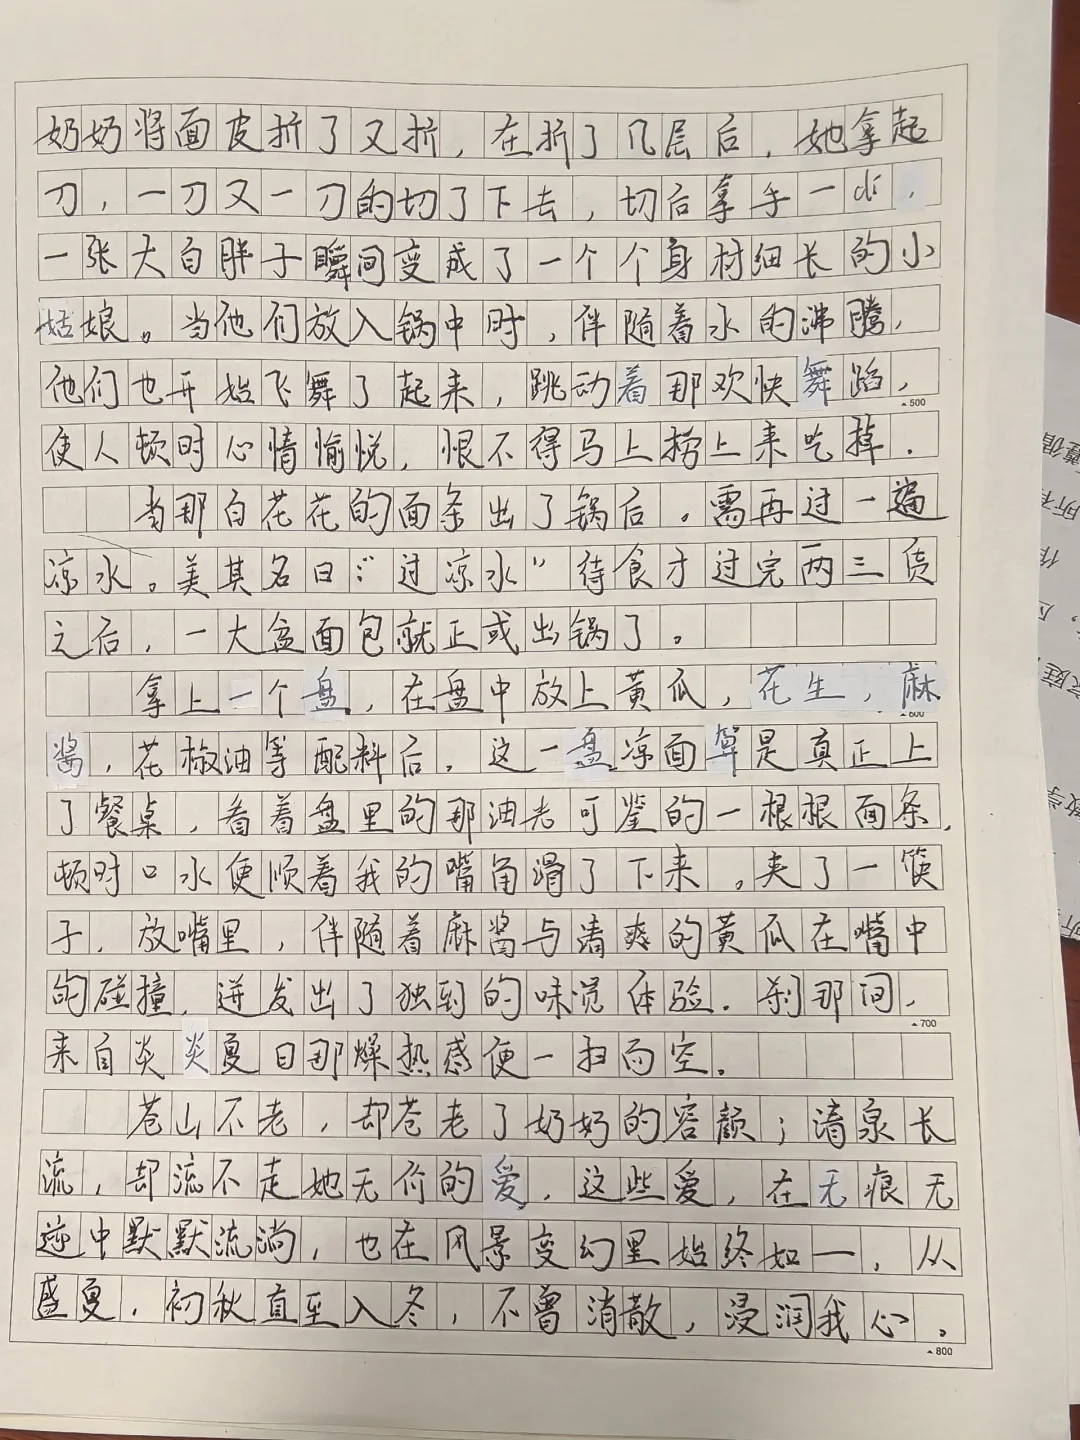 奶奶将面皮折了又折，在折了几层后，她拿起
刀，一刀又一刀的切了下去，切后拿手一dǒ，
一张大白胖子瞬间变成了一个个身材细长的小
姑娘。当他们放入锅中时，伴随着水的沸腾，
他们也开始飞舞了起来，跳动着那欢快舞蹈，
▲500
使人顿时心情愉悦，恨不得马上捞上来吃掉．
当那白花花的面条出了锅后，需再过一遍
凉水。美其名曰："过凉水"待食才过完两三货
之后，一大盆面包就正或出锅了。
拿上一个盘，在盘中放上黄瓜，花生，麻
▲600
酱，花椒油等配料后，这一盘凉面算是真正上
了餐桌，看着盘里的那油光可鉴的一根根面条，
顿时口水便顺着我的嘴角滑了下来。夹了一筷
子，放嘴里，伴随着麻酱与清爽的黄瓜在嘴中
的碰撞，迸发出了独到的味觉体验．刹那间，
▲700
来自炎炎夏日那燥热感便一扫而空．
苍山不老，却苍老了奶奶的容颜；清泉长
流，却流不走她无价的爱，这些爱，在无痕无
迹中默默流淌，也在风景变幻里始终如一，从
盛夏，初秋直至入冬，不曾消散，浸润我心。
▲800